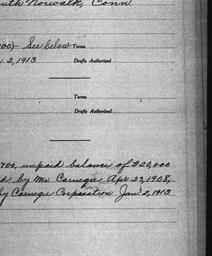 uth Norwalk, Conn.
00)- See below Terms
. 2, 1913. Drafts Authorized
Terms
Drafts Authorized
700, unpaid balance of $20,000
d by Mr. Carnegie Apr. 23, 1908,
by Carnegie Corporation Jan. 2, 1913